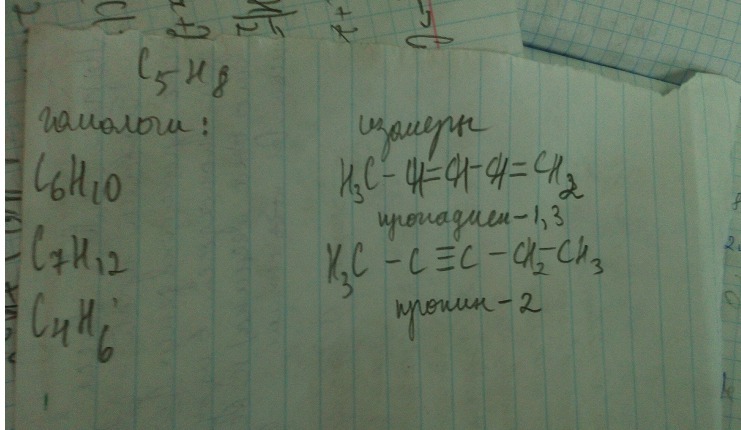 C5H8
гомологи:
C6H10
C7H12
C4H6
изомеры
H3C - CH=CH-CH=CH2
пропадиен-1,3
H3C - C≡C - CH2-CH3
пропин-2